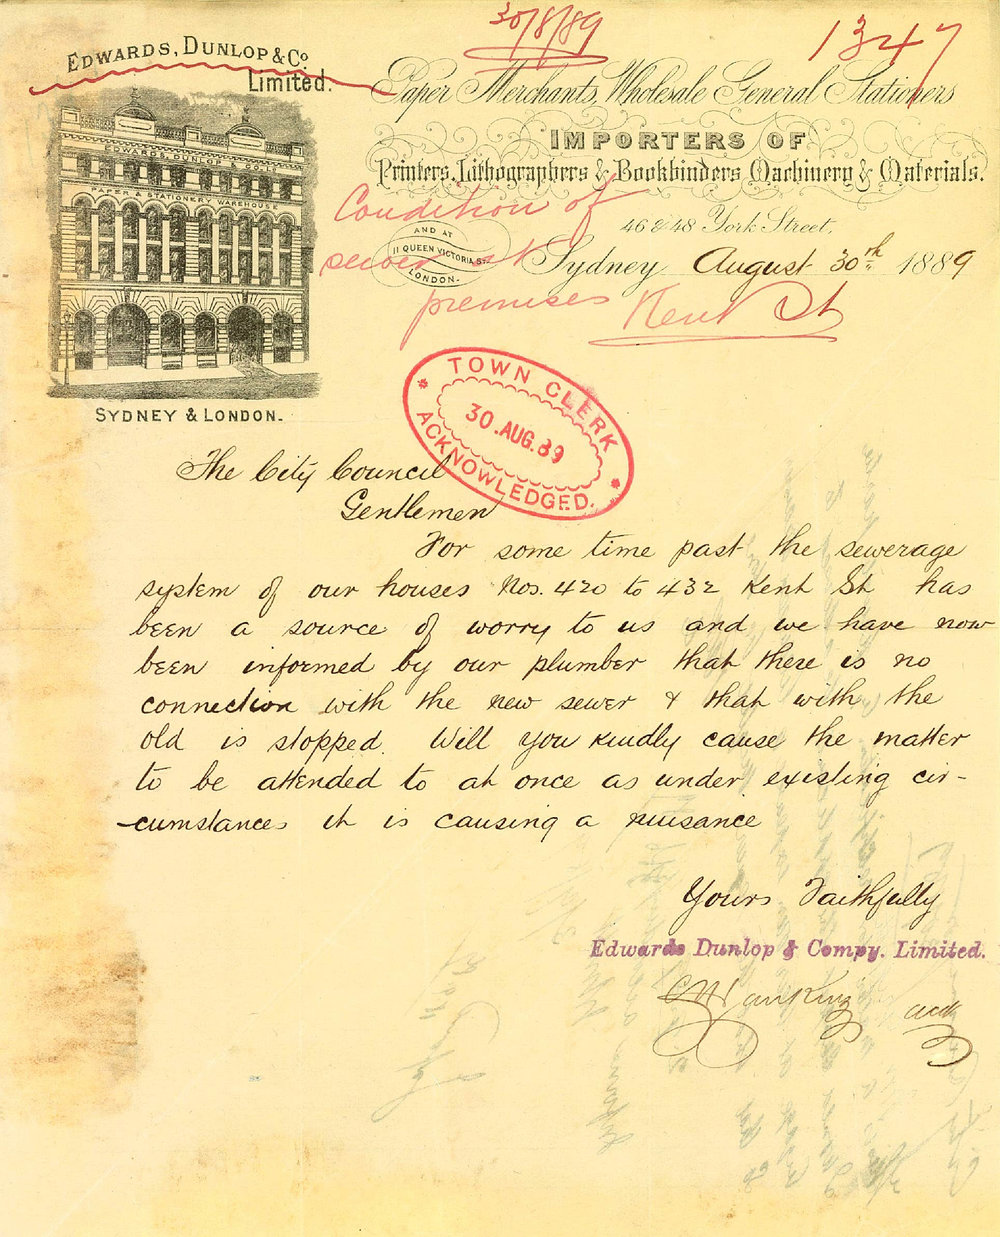 30/8/89
1347
EDWARDS, DUNLOP & Co.
Limited.
Paper Merchants, Wholesale General Stationers
IMPORTERS OF
Printers, Lithographers & Bookbinders Machinery & Materials.
EDWARDS, DUNLOP & CO. LD
PAPER & STATIONERY WAREHOUSE
SYDNEY & LONDON.
46 & 48 York Street,
AND AT
11 QUEEN VICTORIA ST.
LONDON.
Sydney August 30th 1889
Condition of
sewer at
premises Kent St
TOWN CLERK
30. AUG. 89
ACKNOWLEDGED.
The City Council
Gentlemen
For some time past the sewerage
system of our houses Nos. 420 to 432 Kent St has
been a source of worry to us and we have now
been informed by our plumber that there is no
connection with the new sewer & that with the
old is stopped. Will you kindly cause the matter
to be attended to at once as under existing cir-
-cumstances it is causing a nuisance
Yours Faithfully
Edwards Dunlop & Compy. Limited.